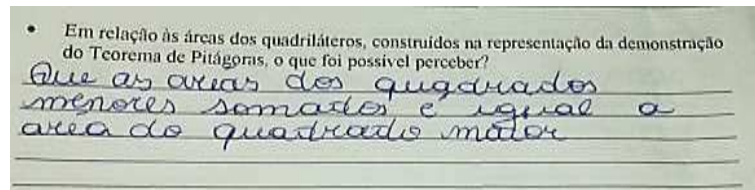 • Em relação às áreas dos quadriláteros, construídos na representação da demonstração
do Teorema de Pitágoras, o que foi possível perceber?
Que as areas dos quqdrados
menores somados e igual a
area do quadrado maior